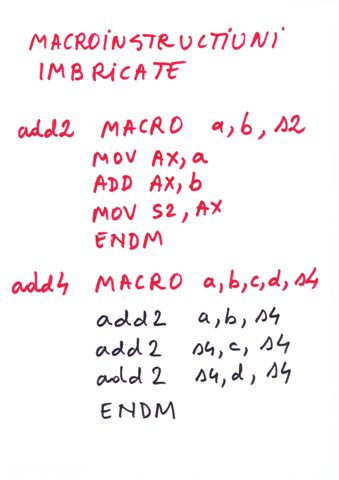 MACROINSTRUCTIUNI
IMBRICATE
add2 MACRO a,b,s2
MOV AX,a
ADD AX,b
MOV S2,AX
ENDM
add4 MACRO a,b,c,d,s4
add2 a,b,s4
add2 s4,c,s4
add2 s4,d,s4
ENDM